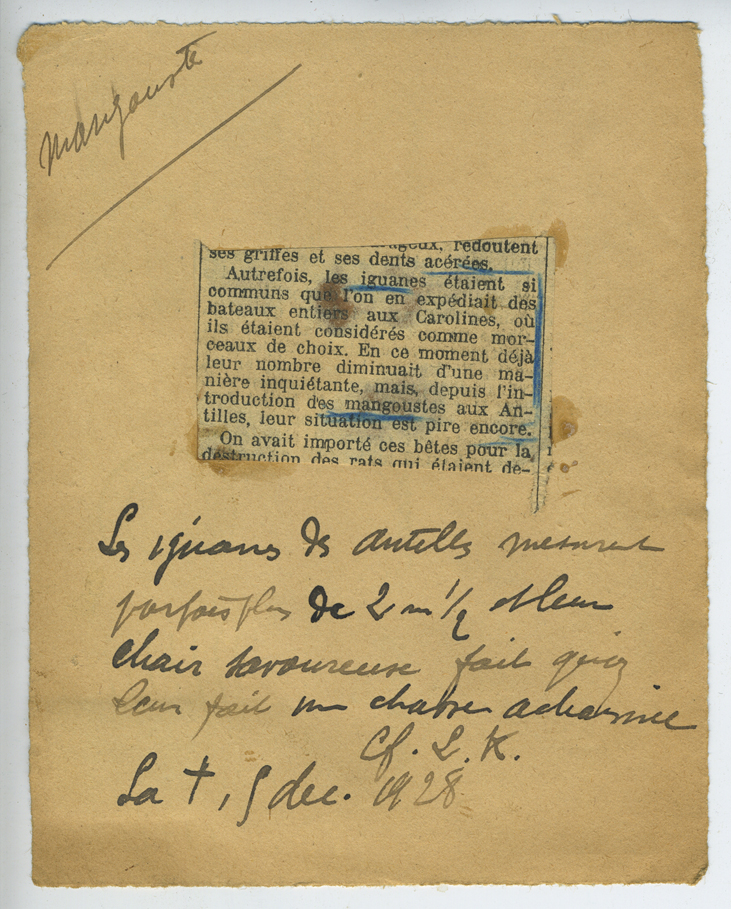 Mangouste
ageux, redoutent
ses griffes et ses dents acérées.
Autrefois, les iguanes étaient si
communs que l'on en expédiait des
bateaux entiers aux Carolines, où
ils étaient considérés comme mor-
ceaux de choix. En ce moment déjà
leur nombre diminuait d'une ma-
nière inquiétante, mais, depuis l'in-
troduction des mangoustes aux An-
tilles, leur situation est pire encore.
On avait importé ces bêtes pour la
destruction des rats qui étaient de-
Les iguanes des Antilles mesurent
parfois plus de 2 m 1/2 et leur
chair savoureuse fait qu'on
leur fait une chasse acharnée
Cf. L. K.
La †, 5 dec. 1928